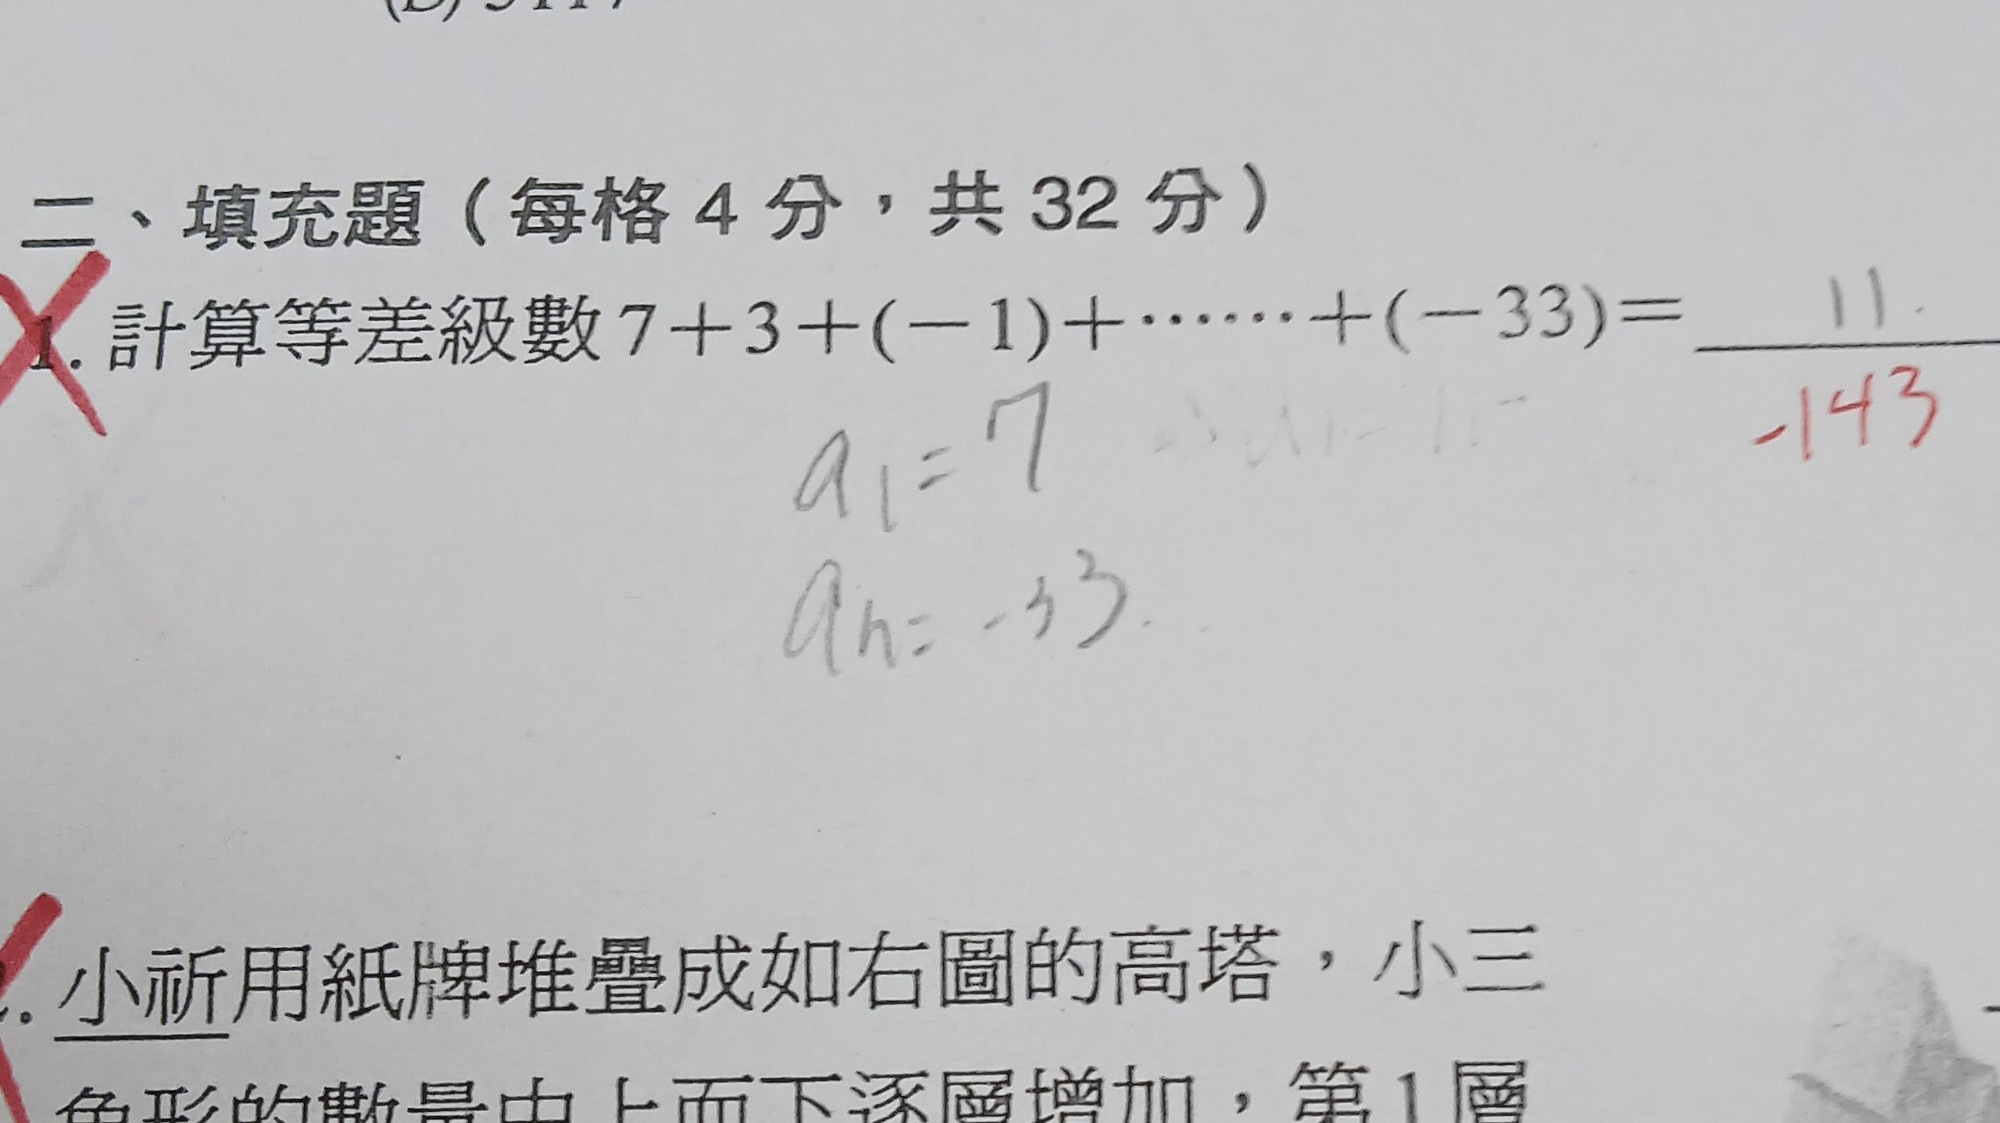 二、填充題（每格 4 分，共 32 分）
1. 計算等差級數 7＋3＋(－1)＋……＋(－33)＝ 11.
-143
a1=7
an=-33.
小祈用紙牌堆疊成如右圖的高塔，小三
角形的數量由上而下逐層增加，第 1 層